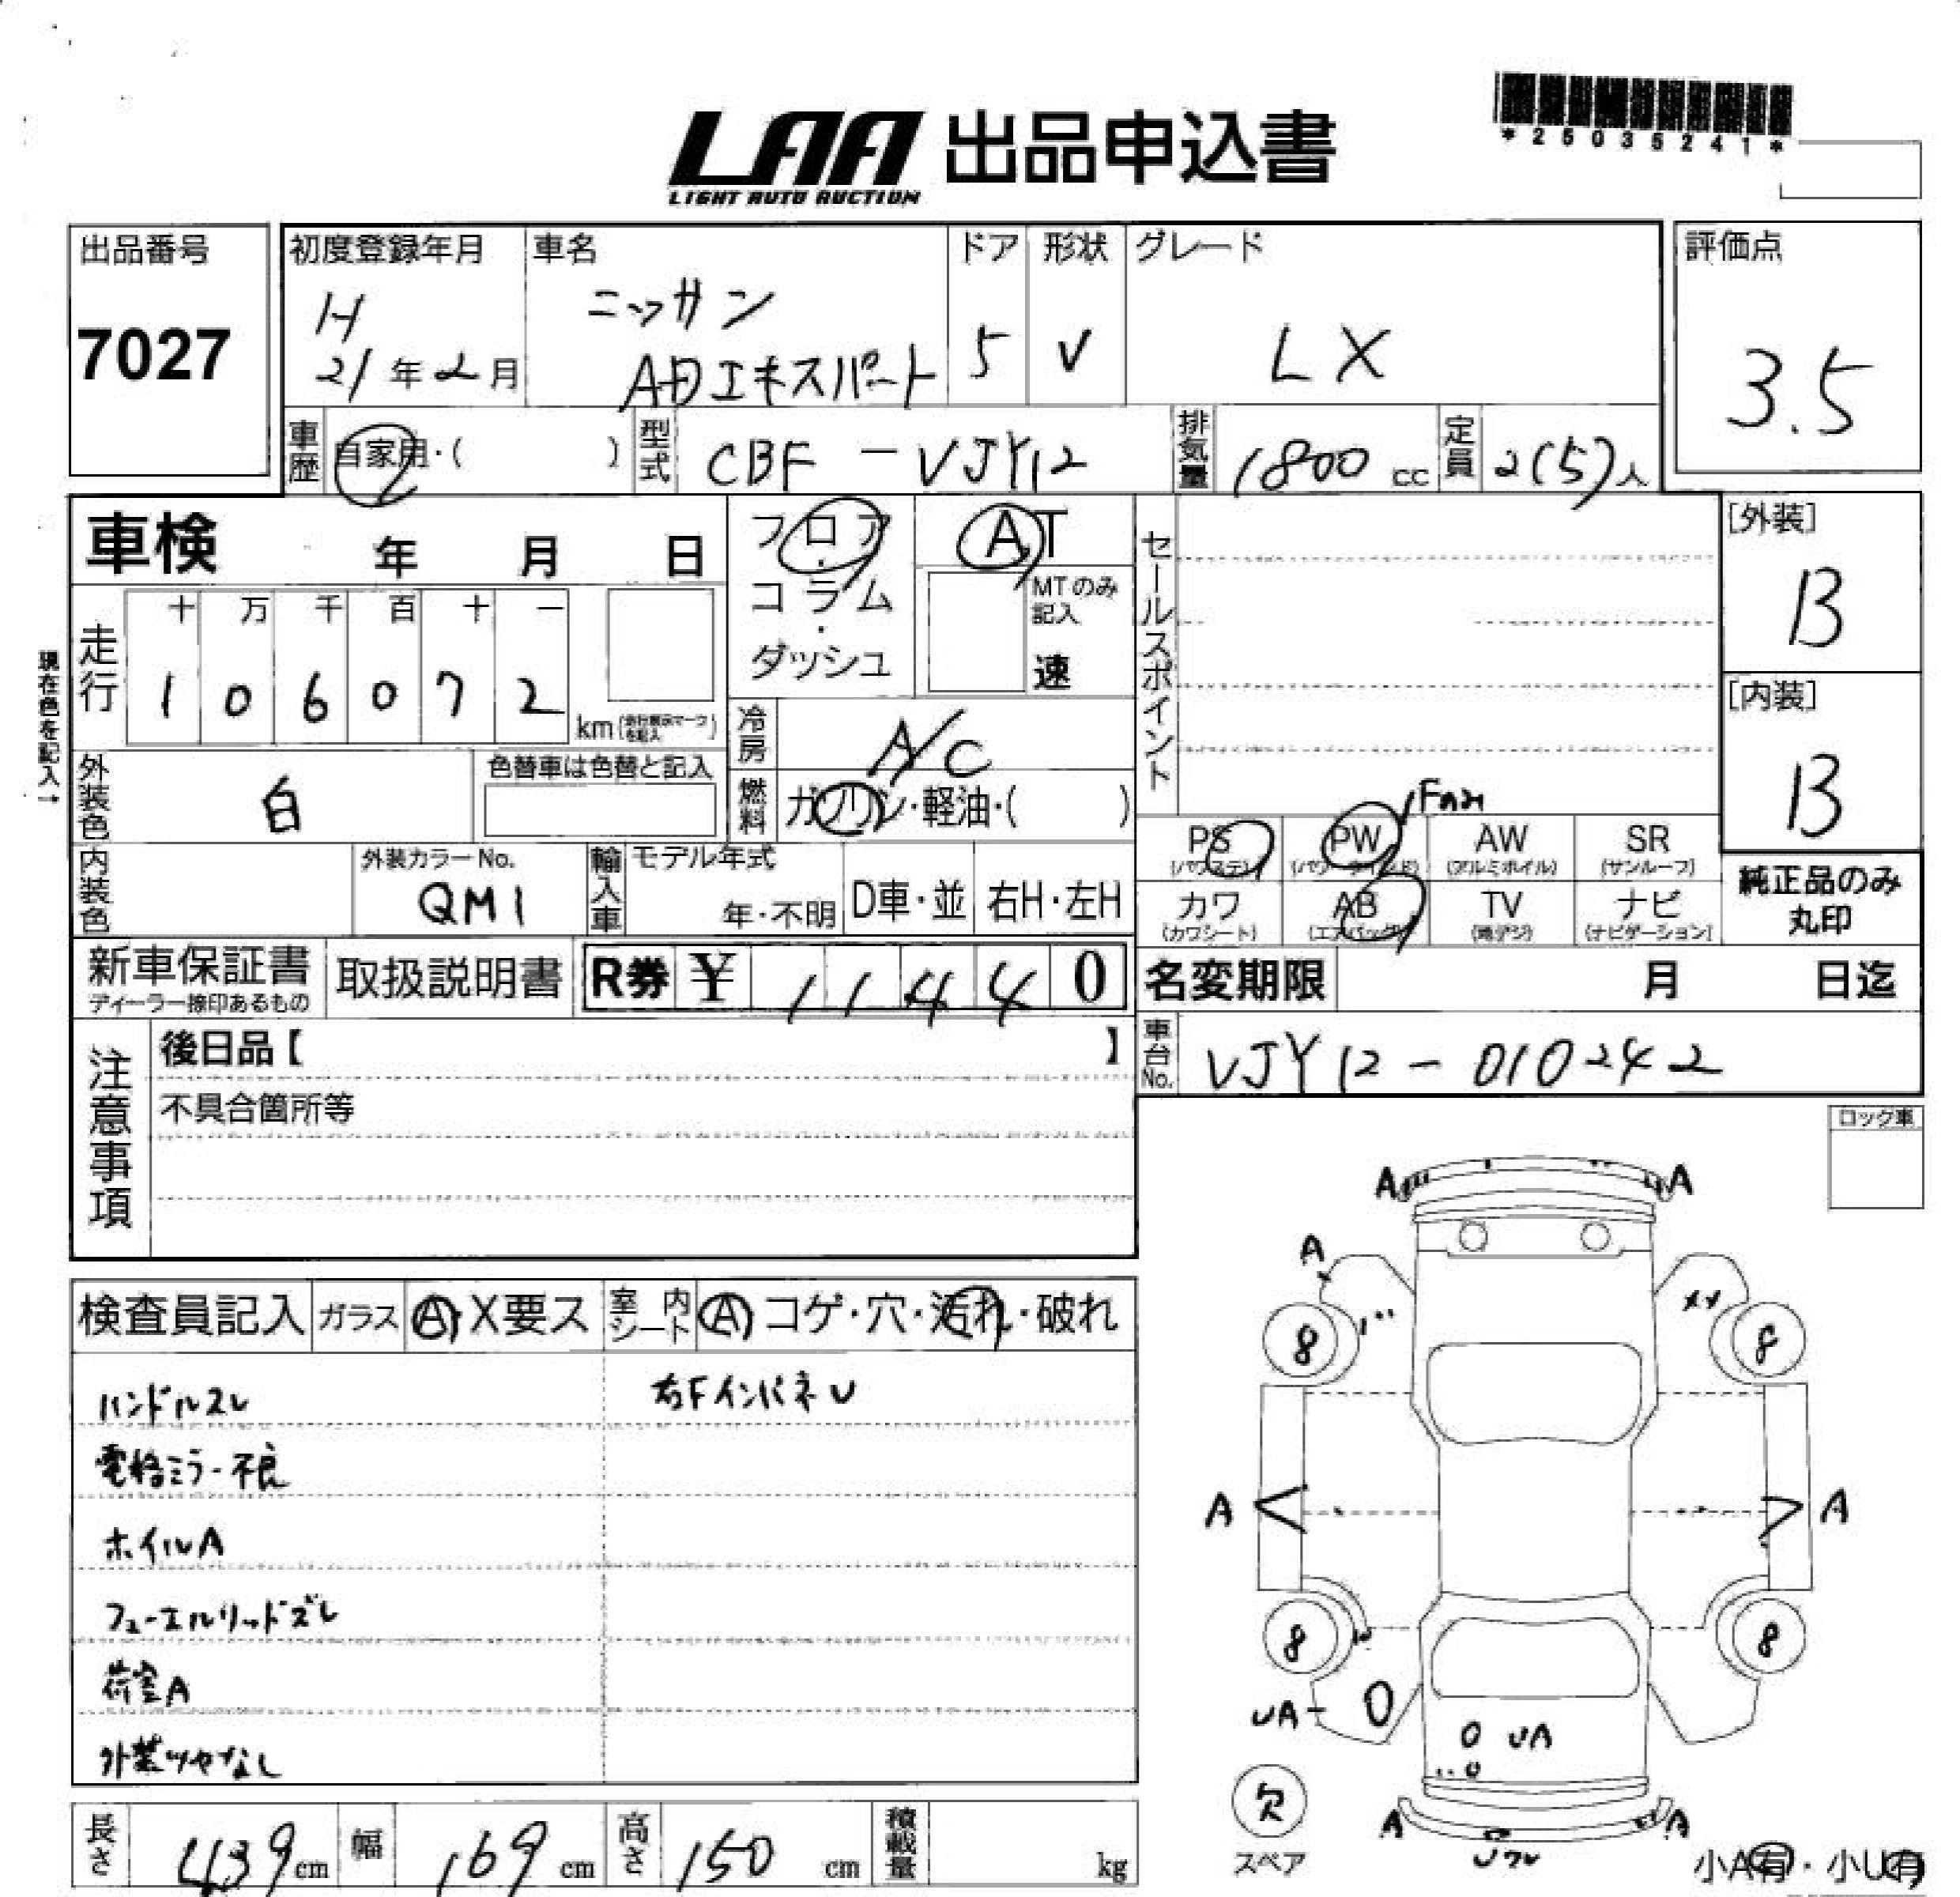 LAA 出品申込書
LIGHT AUTO AUCTION
*25035241*
出品番号
7027
初度登録年月
H
21年2月
車名
ニッサン
ADエキスパート
ドア
5
形状
V
グレード
LX
評価点
3.5
車歴
自家用・( )
型式
CBF-VJY12
排気量
1800cc
定員
2(5)人
車検 年 月 日
フロア・コラム・ダッシュ
AT
MTのみ記入
速
セールスポイント
[外装]
B
[内装]
B
現在色を記入→
走行
十 万 千 百 十 一
1 0 6 0 7 2
km
冷房
A/C
外装色
白
色替車は色替と記入
燃料
ガソリン・軽油・( )
Fのみ
PS PW AW SR
(パワステ) (パワーウインド) (アルミホイル) (サンルーフ)
カワ AB TV ナビ
(カワシート) (エアバッグ) (地デジ) (ナビゲーション)
純正品のみ
丸印
内装色
外装カラーNo.
QM1
輸入車
モデル年式
年・不明
D車・並
右H・左H
新車保証書
ディーラー捺印あるもの
取扱説明書
R券 ¥ 11440
名変期限 月 日迄
車台No.
VJY12-010242
注意事項
後日品【 】
不具合箇所等
ロック車
検査員記入
ガラス
A・X要ス
室内シート
A コゲ・穴・汚れ・破れ
ハンドルスレ
右FインパネU
電格ミラー不良
ホイルA
フューエルリッドズレ
荷室A
外装ツヤなし
A A
A
8 8
A A
8 8
UA
UA
U
A A
欠
スペア
小A有・小U有
長さ
439cm
幅
169cm
高さ
150cm
積載量
kg